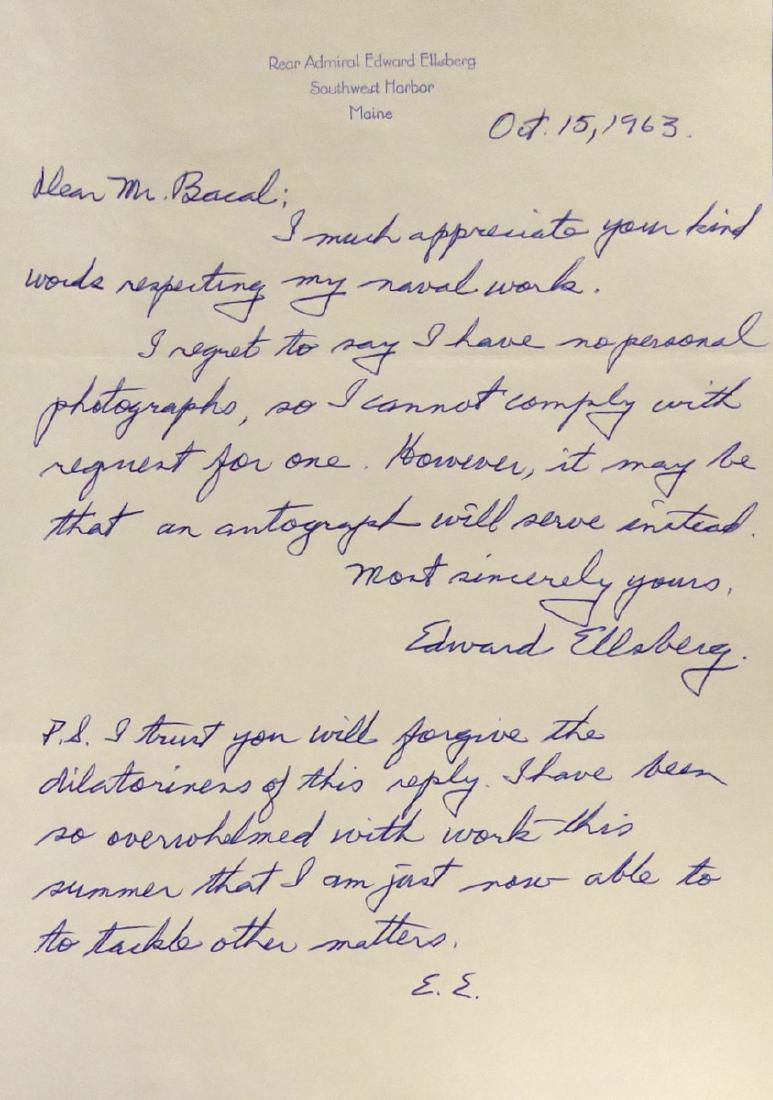 Rear Admiral Edward Ellsberg
Southwest Harbor
Maine
Oct. 15, 1963.
Dear Mr. Bacal;
I much appreciate your kind
words respecting my naval work.
I regret to say I have no personal
photographs, so I cannot comply with
request for one. However, it may be
that an autograph will serve instead.
Most sincerely yours,
Edward Ellsberg.
P.S. I trust you will forgive the
dilatoriness of this reply. I have been
so overwhelmed with work this
summer that I am just now able to
to tackle other matters.
E. E.